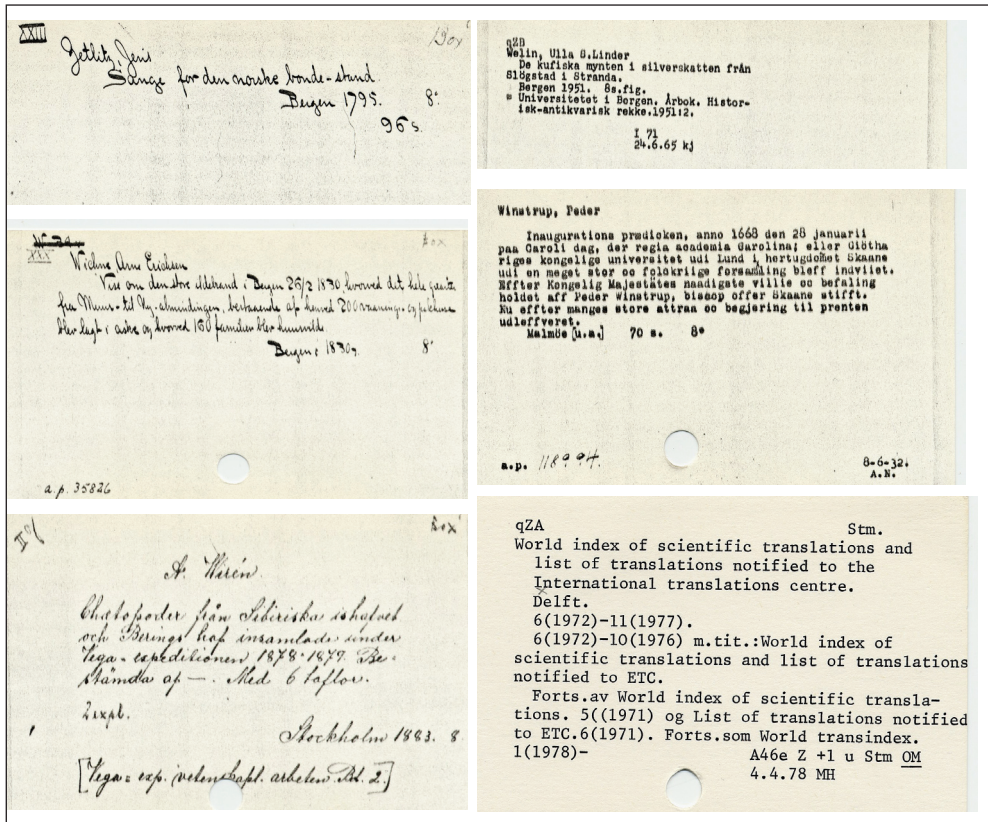 XXIII
Box
Zetlitz, Jens
Sange for den norske bonde-stand.
Bergen 1795. 8°
96 s.
XXX
Box
Wichne, Arne Erichsen
Vise om den store ildebrand i Bergen 26/2 1830 hvorved det hele
fra Muur- til Ny-almindingen, bestaaende af henved 200 vaanings- og pakhuse
blev lagt i aske og hvorved 150 familier blev huusvilde.
Bergen: 1830. 8°
a.p. 35826
Box
A. Wirén.
Chætopoder från Sibiriska ishafvet
och Berings haf insamlade under
Vega-expeditionen 1878-1879. Be-
stämda af —. Med 6 taflor.
2 expl.
Stockholm 1883. 8.
[Vega-exp. vetenskapl. arbeten. Bd. 2.]
qZB
Welin, Ulla S.Linder
De kufiska mynten i silverskatten från
Slögstad i Stranda.
Bergen 1951. 8s.fig.
= Universitetet i Bergen. Årbok. Histor-
isk-antikvarisk rekke.1951:2.
I 71
24.6.65 kj
Winstrup, Peder
Inaugurations prædicken, anno 1668 den 28 januarii
paa Caroli dag, der regia academia Carolina; eller Giötha
riges kongelige universitet udi Lund i hertugdomet Skaane
udi en meget stor oc folckriige forsamling bleff indviiet.
Effter Kongelig Majestätes naadigste villie oc befaling
holdet aff Peder Winstrup, biscop offer Skaane stifft.
Nu effter manges store attraa oc begjering til prenten
udleffveret.
Malmöe [u.a.] 70 s. 8°
a.p. 118994.
8-6-32.
A.N.
qZA Stm.
World index of scientific translations and
list of translations notified to the
International translations centre.
Delft.
6(1972)-11(1977).
6(1972)-10(1976) m.tit.:World index of
scientific translations and list of translations
notified to ETC.
Forts.av World index of scientific transla-
tions. 5((1971) og List of translations notified
to ETC.6(1971). Forts.som World transindex.
1(1978)-
A46e Z +1 u Stm OM
4.4.78 MH